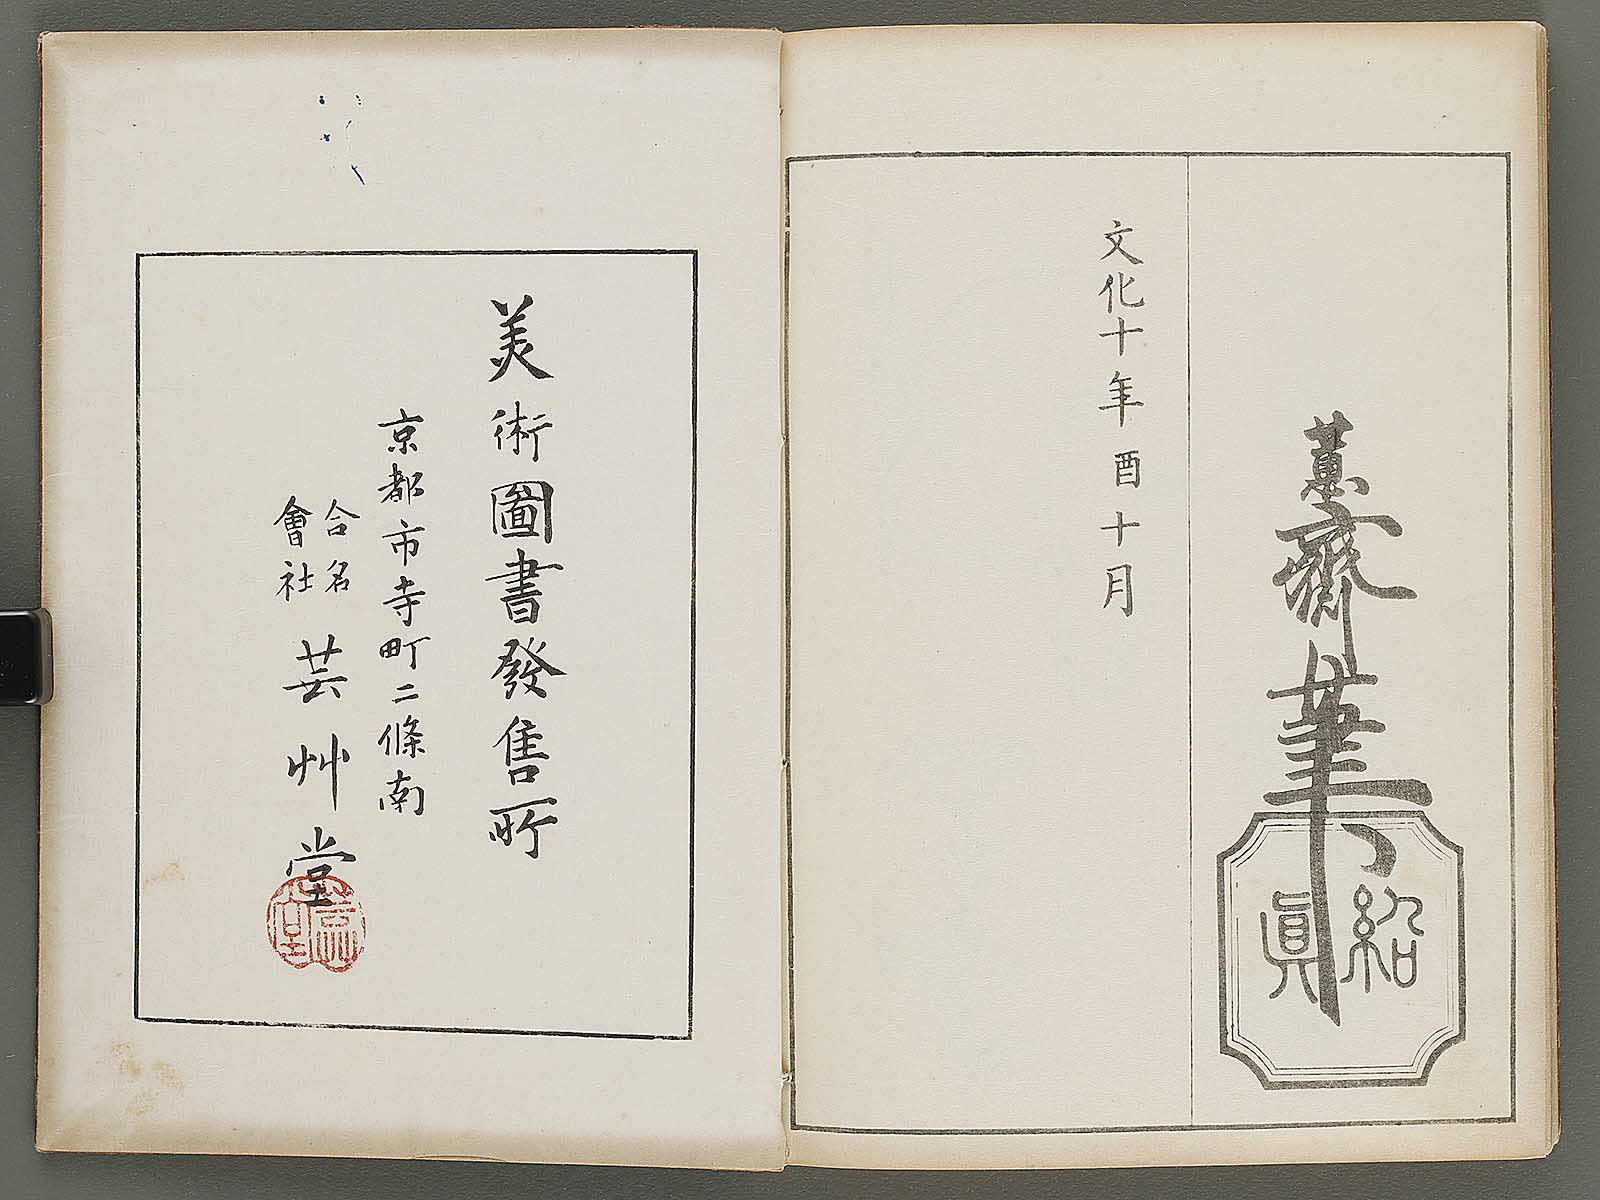 蕙齋筆
紹
眞
文化十年酉十月
美術圖書發售所
京都市寺町二條南
合名
會社
芸艸堂
芸艸
堂